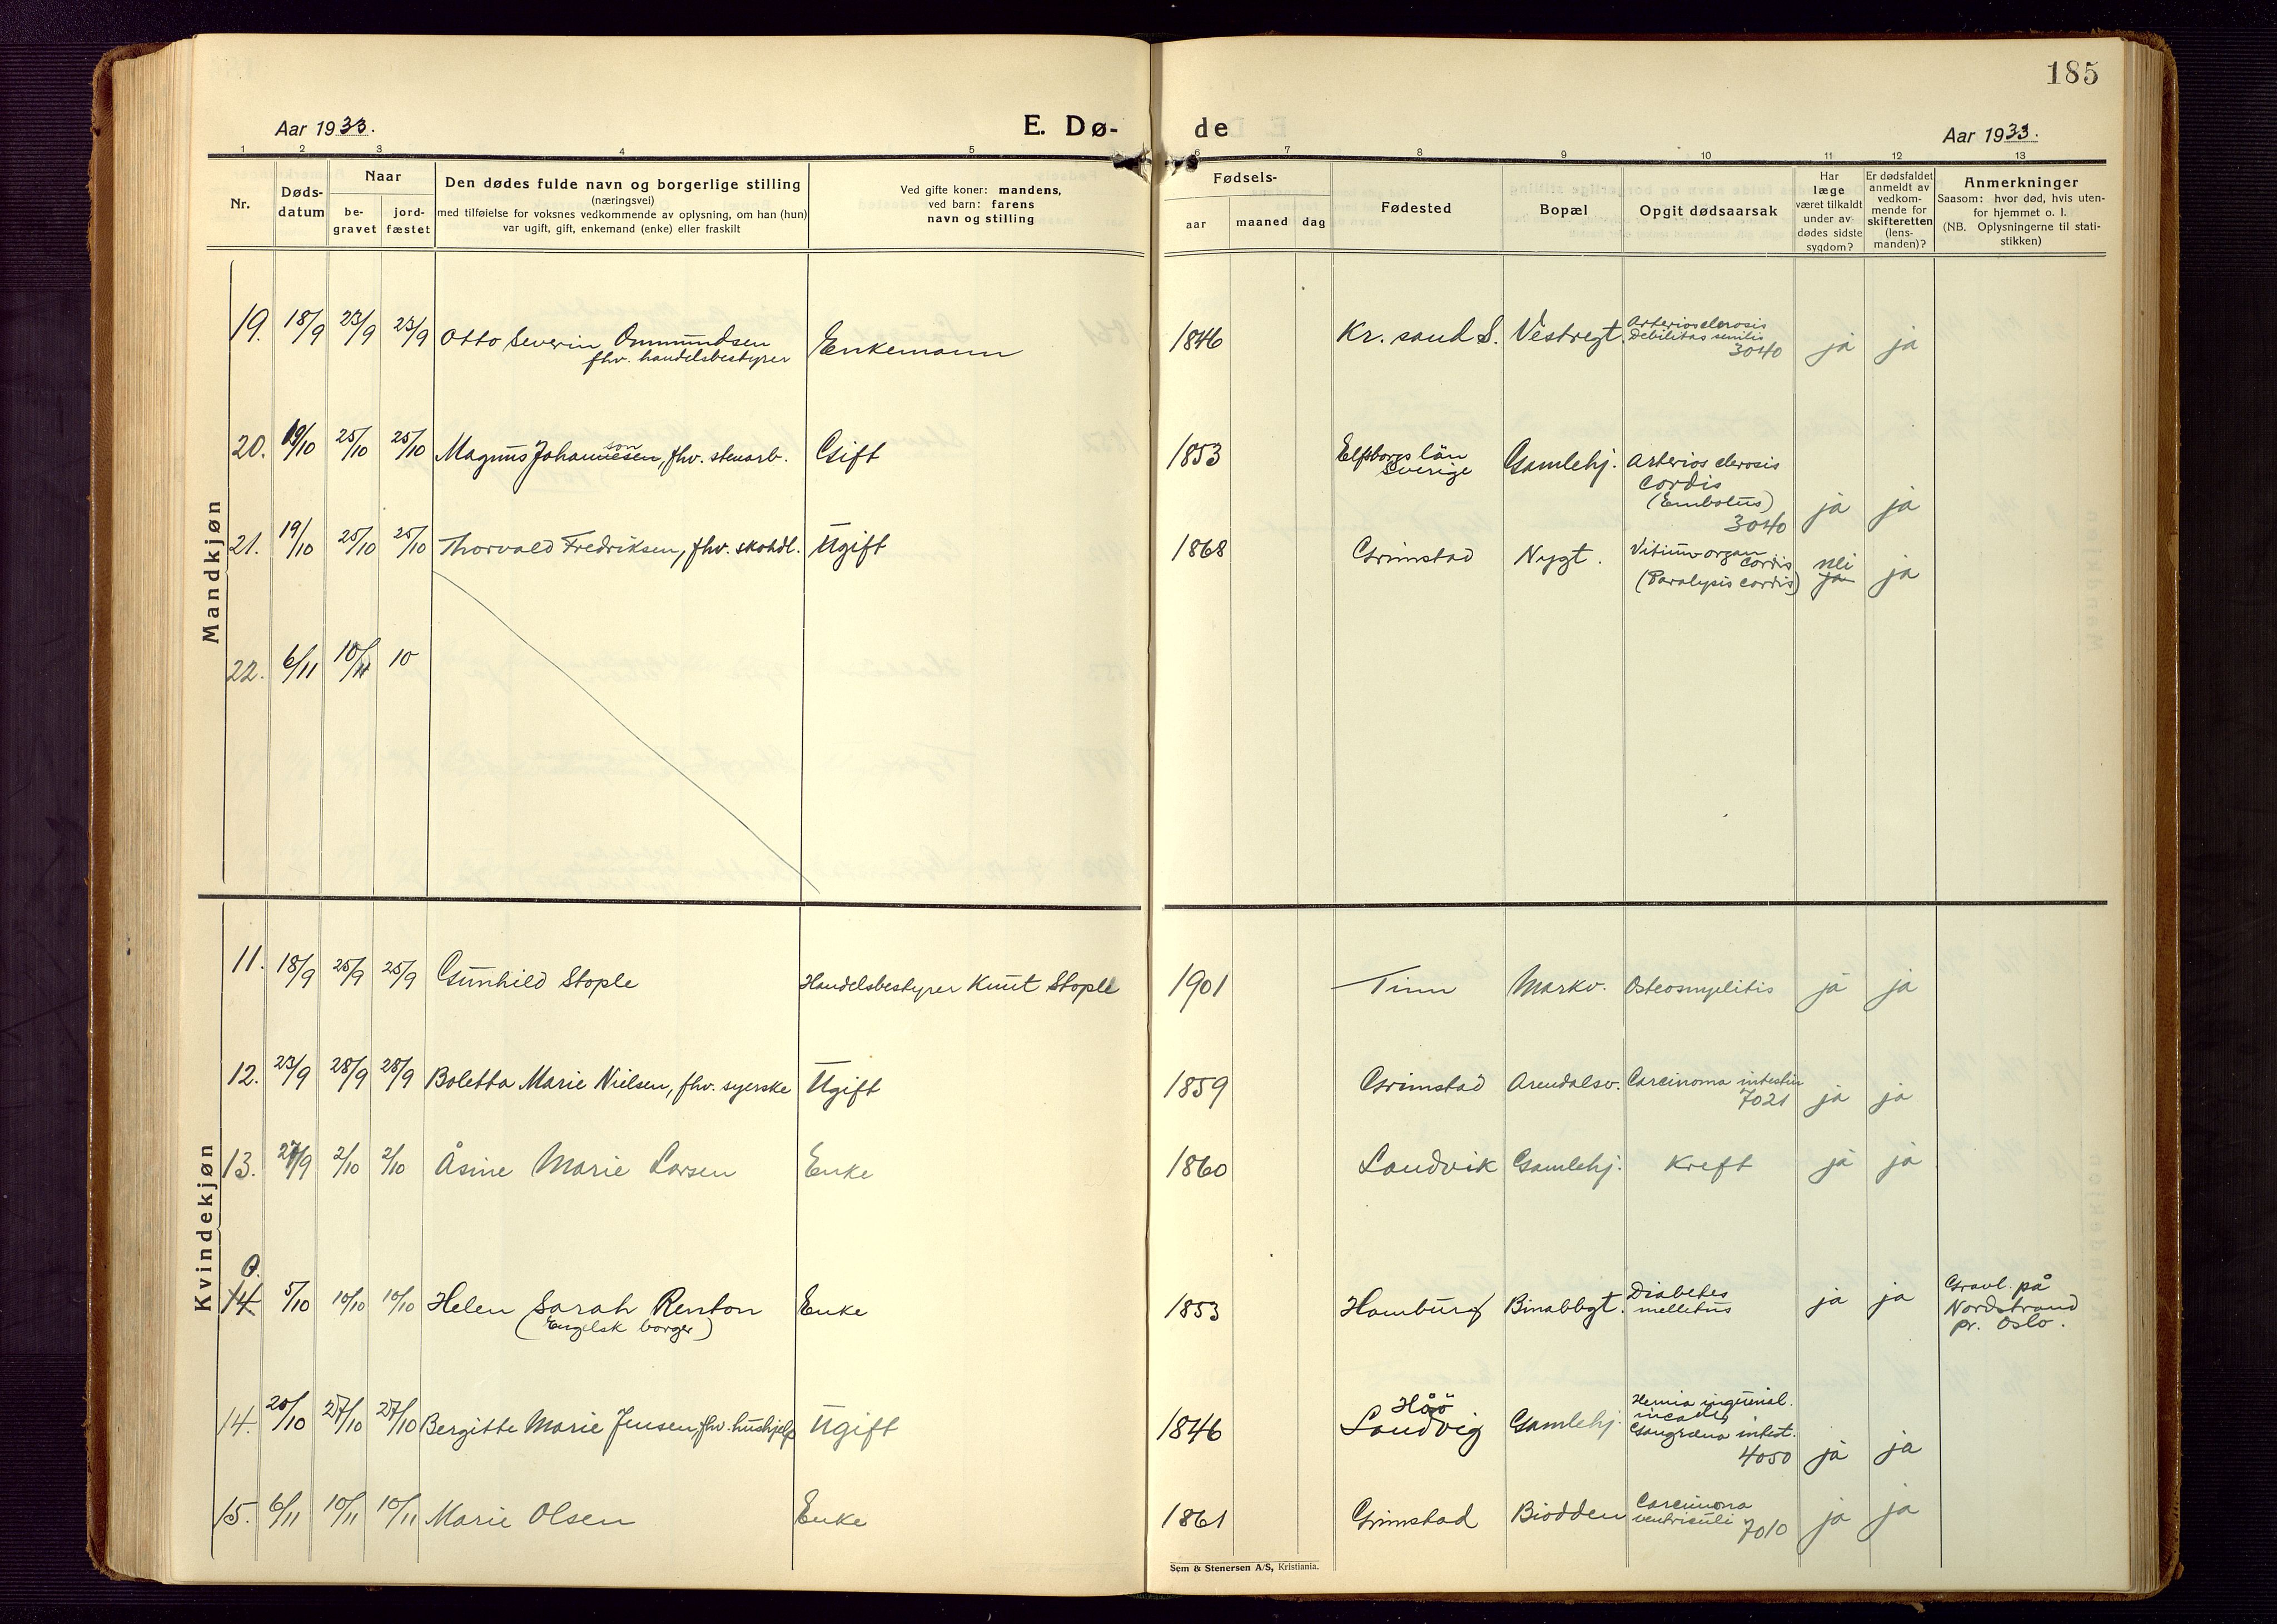 185
Aar 1933.
E. Dø-
de
Aar 1933.
1 2 3 4 5 6 7 8 9 10 11 12 13
Nr.
Døds-
datum
Naar
be-
gravet
jord-
fæstet
Den dødes fulde navn og borgerlige stilling
(næringsvei)
med tilføielse for voksnes vedkommende av oplysning, om han (hun)
var ugift, gift, enkemand (enke) eller fraskilt
Ved gifte koner: mandens,
ved barn: farens
navn og stilling
Fødsels-
aar
maaned
dag
Fødested
Bopæl
Opgit dødsaarsak
Har
læge
været tilkaldt
under av-
dødes sidste
sygdom?
Er dødsfaldet
anmeldt av
vedkom-
mende for
skifteretten
(lens-
manden)?
Anmerkninger
Saasom: hvor død, hvis uten-
for hjemmet o. l.
(NB. Oplysningerne til stati-
stikken)
Mandkjøn
19. 18/9 23/9 23/9 Otto Severin Ommundsen
fhv. handelsbestyrer
Enkemann
1846 Kr. sand S. Vestregt.
Arteriosclerosis
Debilitas senilis
3040
ja ja
20. 19/10 25/10 25/10 Magnus Johannesen, fhv. stenarb.
son
Gift
1853
Elfsborgs län
Sverige
Gamlehj.
Arteriosclerosis
cordis
(Embolus)
3040
ja ja
21. 19/10 25/10 25/10 Thorvald Fredriksen, fhv. skohdl. Ugift
1868 Grimstad Nygt.
Vitium organ
cordis
(Paralysis cordis)
nei
ja
ja
22. 6/11 10/11 10
Kvindekjøn
11. 18/9 25/9 25/9 Gunhild Stople Handelsbestyrer Knut Stople
1901 Tinn Markv. Osteomyelitis ja ja
12. 23/9 28/9 28/9 Boletta Marie Nielsen, fhv. syerske Ugift
1859 Grimstad Arendalsv. Carcinoma intestin
7021
ja ja
13. 27/9 2/10 2/10 Åsine Marie Larsen Enke
1860 Landvik Gamlehj. Kreft ja ja
0.
14 5/10 10/10 10/10 Helen Sarah Renton Enke
(Engelsk borger)
1853 Hamburg Binabbgt.
Diabetes
mellitus
ja ja
Gravl. på
Nordstrand
pr. Oslo.
14. 20/10 27/10 27/10 Bergitte Marie Jensen, fhv. hushjelp Ugift
1846
Håö
Landvig
Gamlehj.
Hernia inguinal.
incarc.
Gangræna intest.
4050
ja ja
15. 6/11 10/11 10/11 Marie Olsen Enke
1861 Grimstad Biodden
Carcinoma
ventriculi 7010
ja ja
Sem & Stenersen A/S, Kristiania.